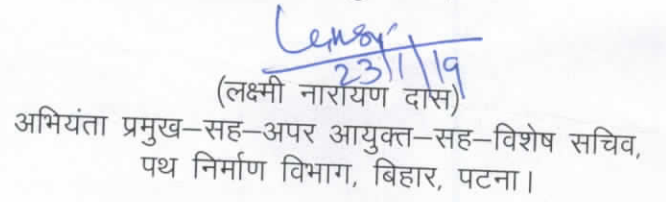 23/1/19
(लक्ष्मी नारायण दास)
अभियंता प्रमुख–सह–अपर आयुक्त–सह–विशेष सचिव,
पथ निर्माण विभाग, बिहार, पटना।